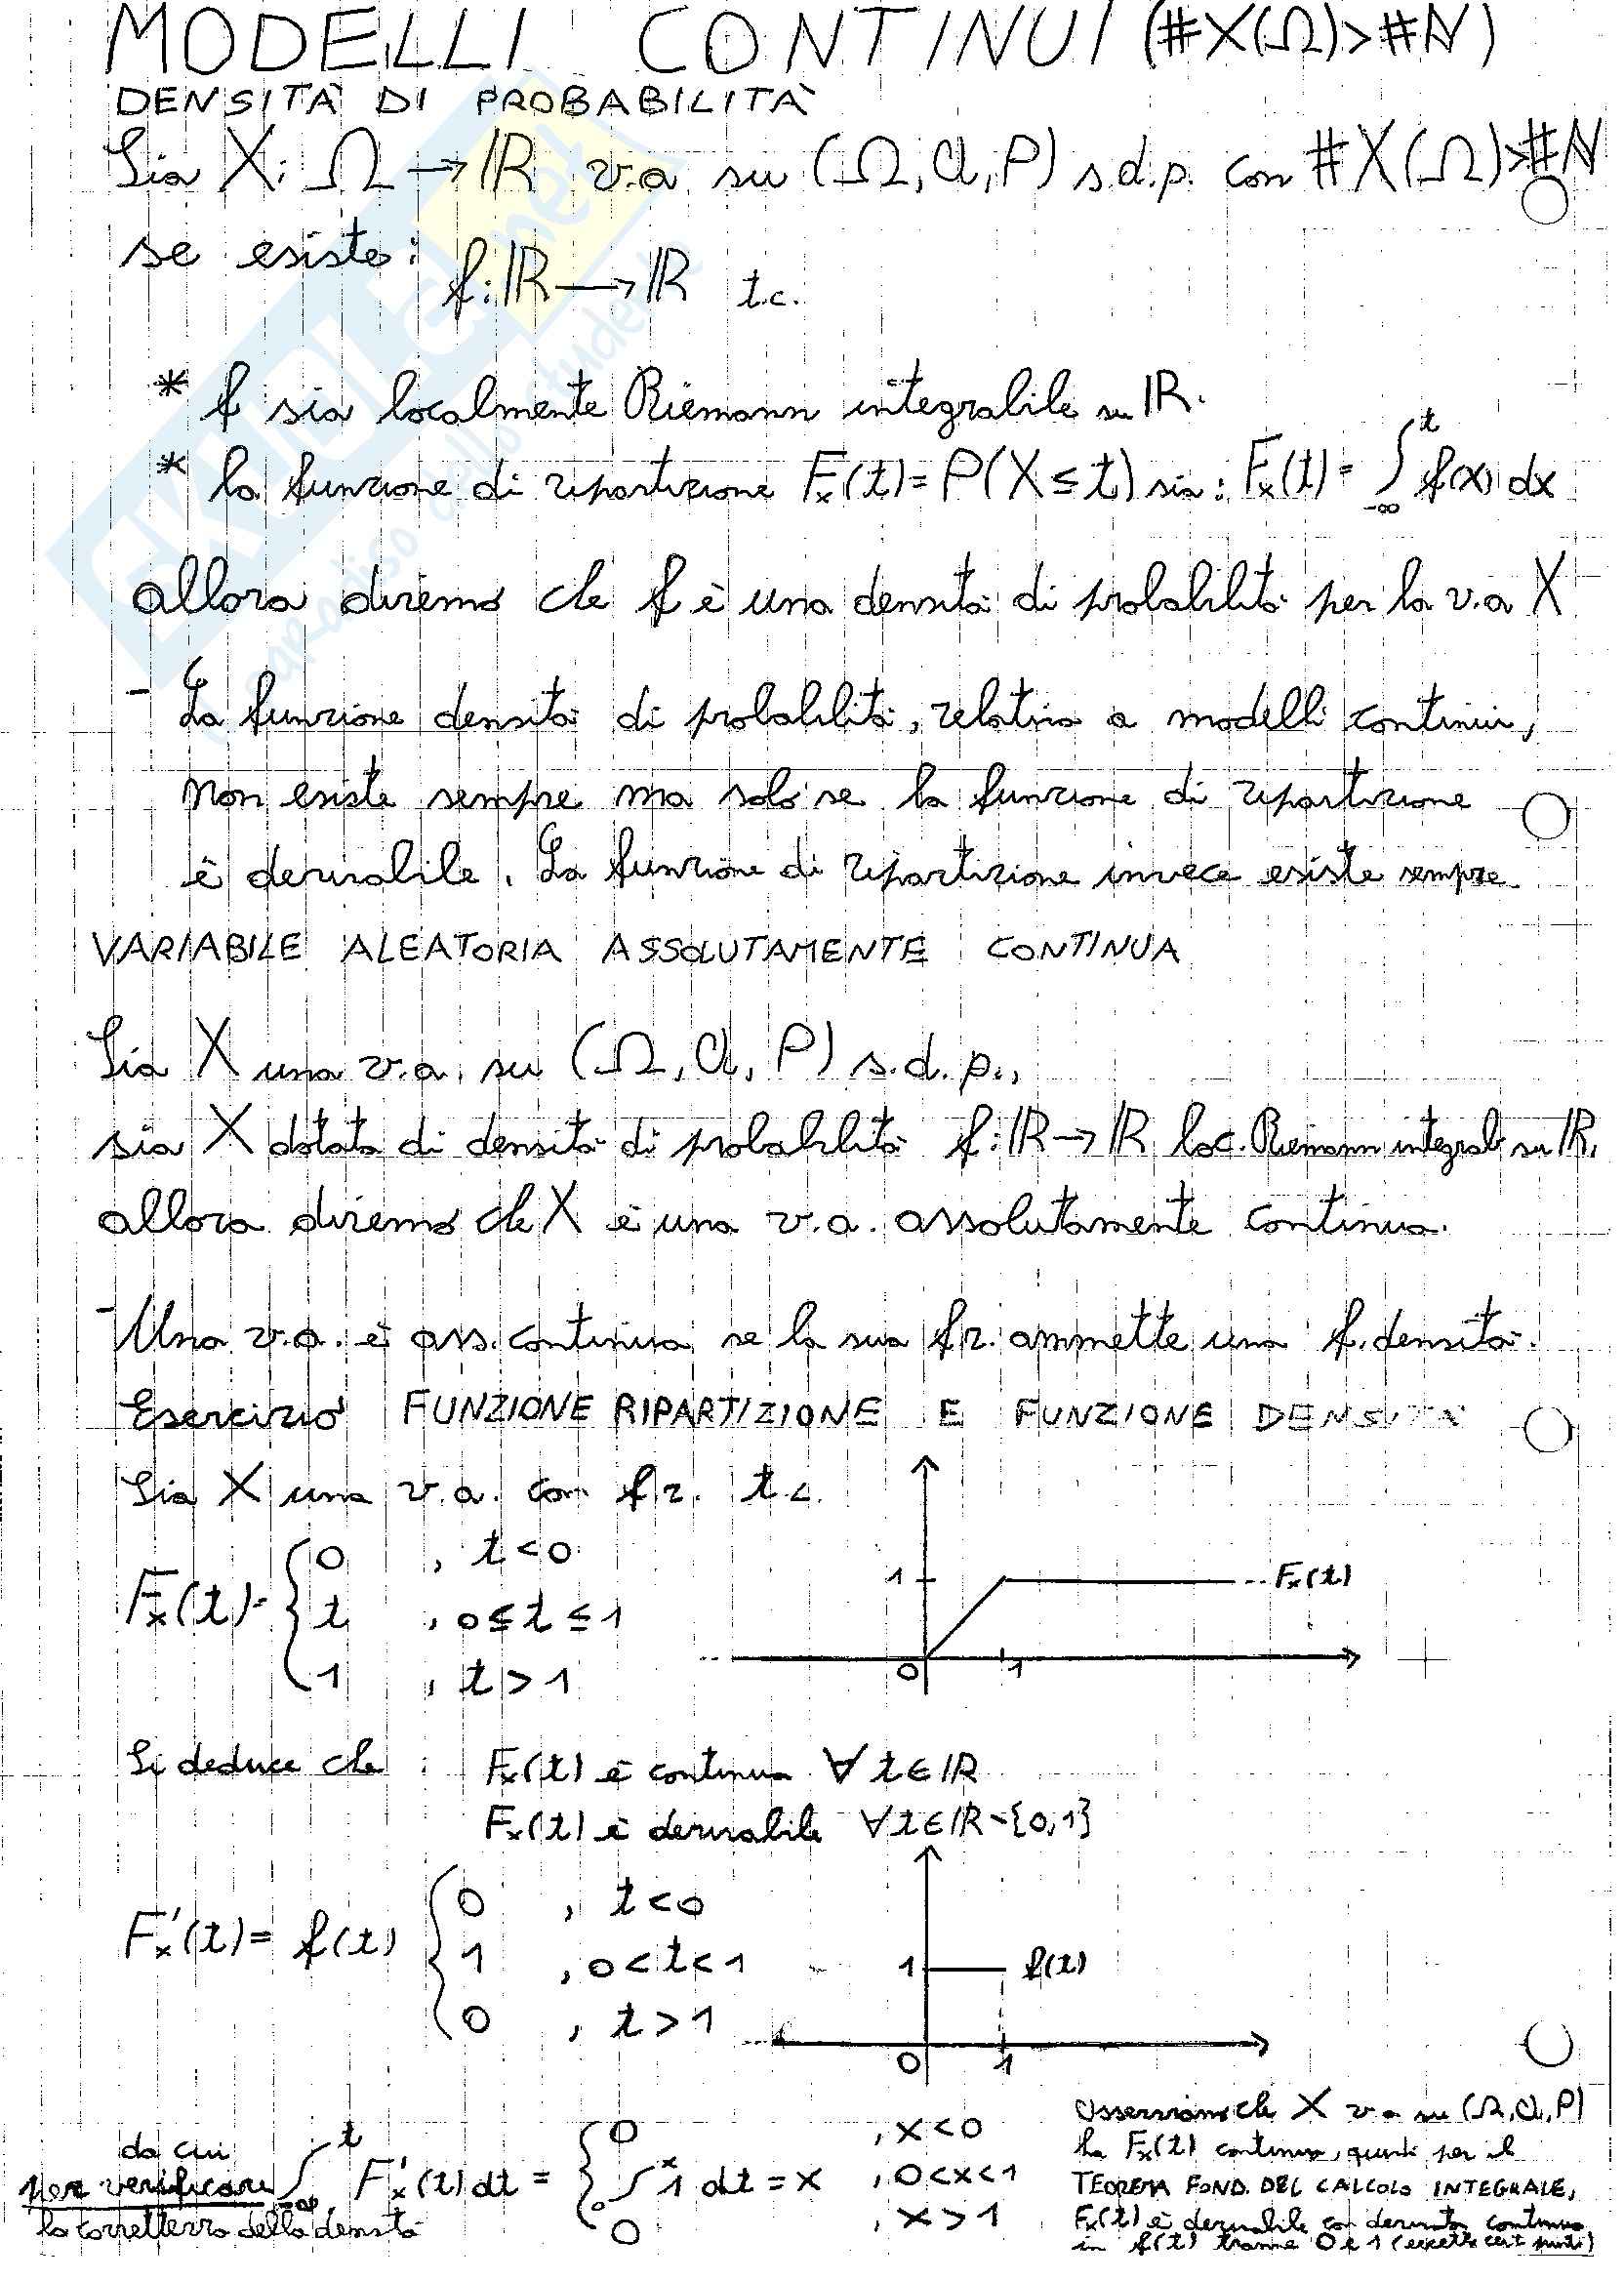 MODELLI CONTINUI (#X(Ω)>#N)
DENSITÀ DI PROBABILITÀ
Sia X: Ω → ℝ v.a. su (Ω, a, P) s.d.p. con #X(Ω)>#N
se esiste:
f: ℝ → ℝ t.c.
* f sia localmente Riemann integrabile su ℝ.
* la funzione di ripartizione Fx(t) = P(X ≤ t) sia: Fx(t) = ∫_{-∞}^{t} f(x) dx
allora diremo che f è una densità di probabilità per la v.a X
- La funzione densità di probabilità, relativa a modelli continui,
non esiste sempre ma solo se la funzione di ripartizione
è derivabile. La funzione di ripartizione invece esiste sempre
VARIABILE ALEATORIA ASSOLUTAMENTE CONTINUA
Sia X una v.a. su (Ω, a, P) s.d.p.,
sia X dotata di densità di probabilità f: ℝ → ℝ loc. Riemann integrab su ℝ,
allora diremo che X è una v.a. assolutamente continua.
- Una v.a. è ass. continua se la sua f.r. ammette una f. densità.
Esercizio FUNZIONE RIPARTIZIONE E FUNZIONE DENSITÀ
Sia X una v.a. con f.r. t.c.
Fx(t) = { 0 , t<0
t , 0≤t≤1
1 , t>1
1 Fx(t)
0 1
Si deduce che : Fx(t) è continua ∀ t∈ℝ
Fx(t) è derivabile ∀t∈ℝ-{0,1}
F'x(t) = f(t) { 0 , t<0
1 , 0<t<1
0 , t>1
1 f(t)
0 1
da cui
per verificare
la correttezza della densità
∫_{-∞}^{t} F'x(t) dt = { 0 , x<0
∫_{0}^{x} 1 dt = x , 0<x<1
0 , x>1
Osserviamo che X v.a su (Ω, a, P)
ha Fx(t) continua, quindi per il
TEOREMA FOND. DEL CALCOLO INTEGRALE,
Fx(t) è derivabile con derivata continua
in f(t) tranne 0 e 1 (eccetto cert punti)